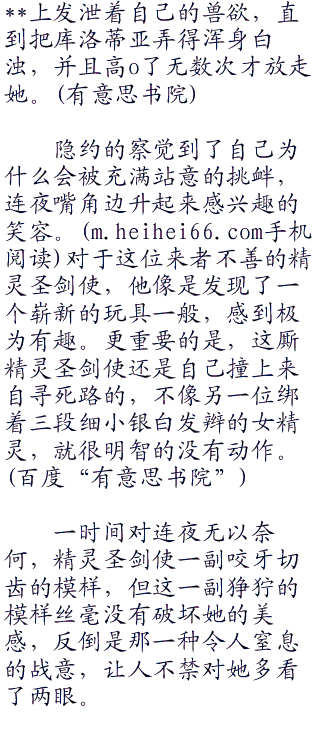 **上发泄着自己的兽欲，直
到把库洛蒂亚弄得浑身白
浊，并且高o了无数次才放走
她。(有意思书院)
隐约的察觉到了自己为
什么会被充满站意的挑衅，
连夜嘴角边升起来感兴趣的
笑容。(m.heihei66.com手机
阅读)对于这位来者不善的精
灵圣剑使，他像是发现了一
个崭新的玩具一般，感到极
为有趣。更重要的是，这厮
精灵圣剑使还是自己撞上来
自寻死路的，不像另一位绑
着三段细小银白发辫的女精
灵，就很明智的没有动作。
(百度“有意思书院”)
一时间对连夜无以奈
何，精灵圣剑使一副咬牙切
齿的模样，但这一副狰狞的
模样丝毫没有破坏她的美
感，反倒是那一种令人窒息
的战意，让人不禁对她多看
了两眼。